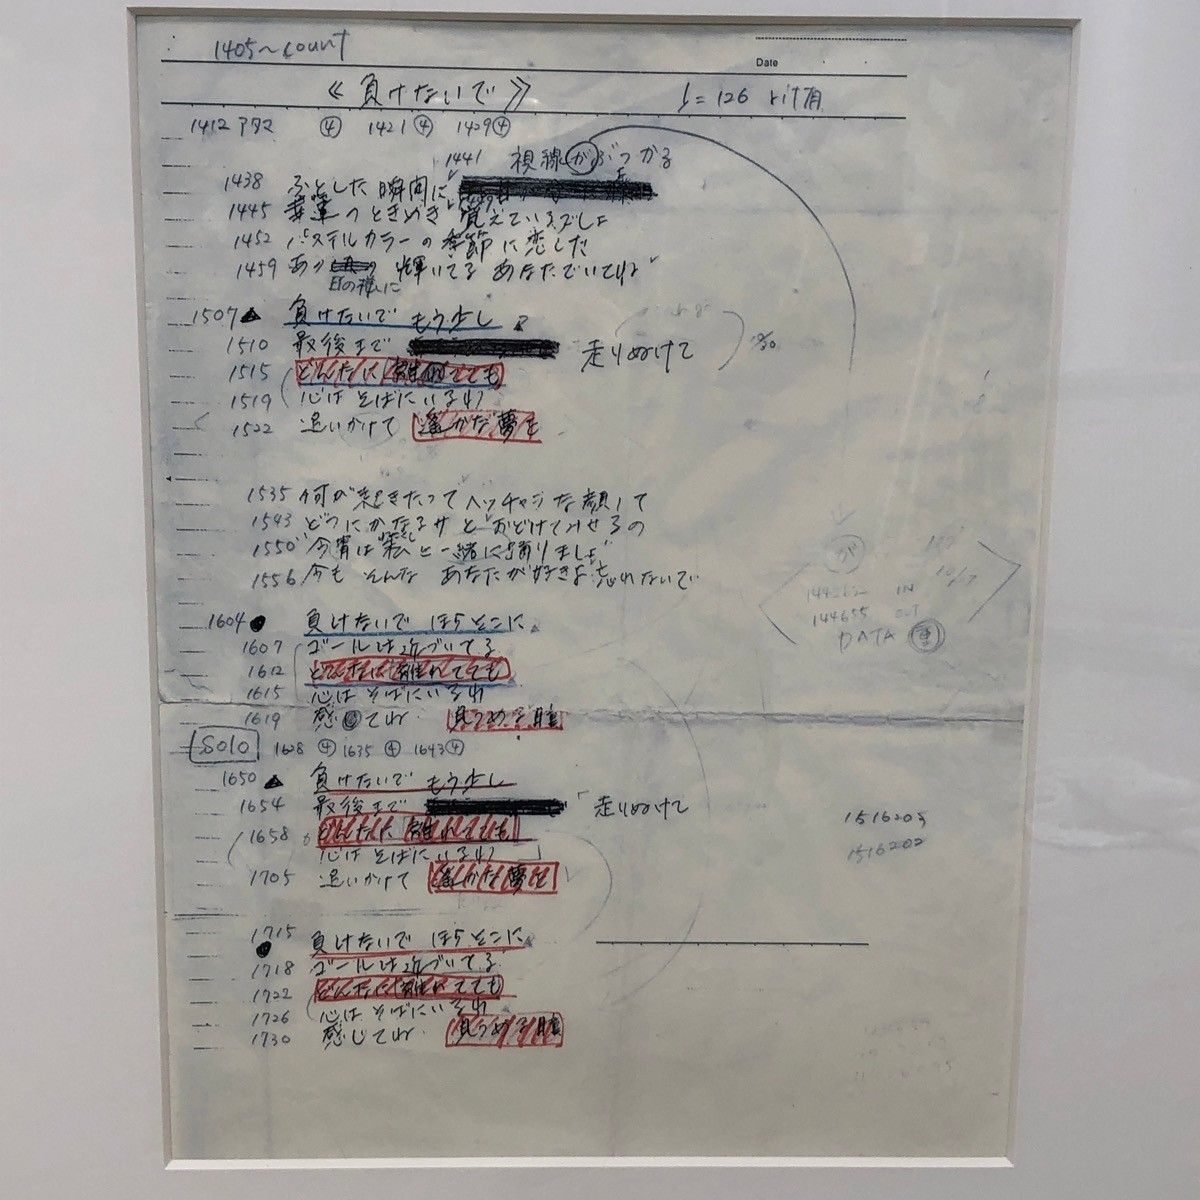 1405~count
Date
《負けないで》 ♩=126 rit有
1412 アタマ ④ 1421 ④ 1429 ④
1441 視線がぶつかる
1438 ふとした瞬間に
1445 幸運のときめき 覚えているでしょ
1452 パステルカラーの季節に恋した
1459 あの 輝いてる あなたでいてね
日の様に
1507 ▲ 負けないで もう少し
1510 最後まで 走りぬけて
1515 どんなに 離れてても
1519 心は そばにいるわ
1522 追いかけて 遥かな夢を
1535 何が起きたって ヘッチャラな顔して
1543 どうにかなるサと おどけてみせるの
1550 "今宵は私と一緒に踊りましょ"
1556 今も そんな あなたが好きよ 忘れないで
1604 ● 負けないで ほらそこに
1607 ゴールは近づいてる
1612 どんなに 離れてても
1615 心は そばにいるわ
1619 感じてね 見つめる瞳
Solo 1628 ④ 1635 ④ 1643 ④
1650 ▲ 負けないで もう少し
1654 最後まで 走りぬけて
1658 どんなに 離れてても
心は そばにいるわ
1705 追いかけて 遥かな夢を
1715 ● 負けないで ほらそこに
1718 ゴールは近づいてる
1722 どんなに 離れてても
1726 心は そばにいるわ
1730 感じてね 見つめる瞳
が
IN
144655 OUT
DATA
1516202